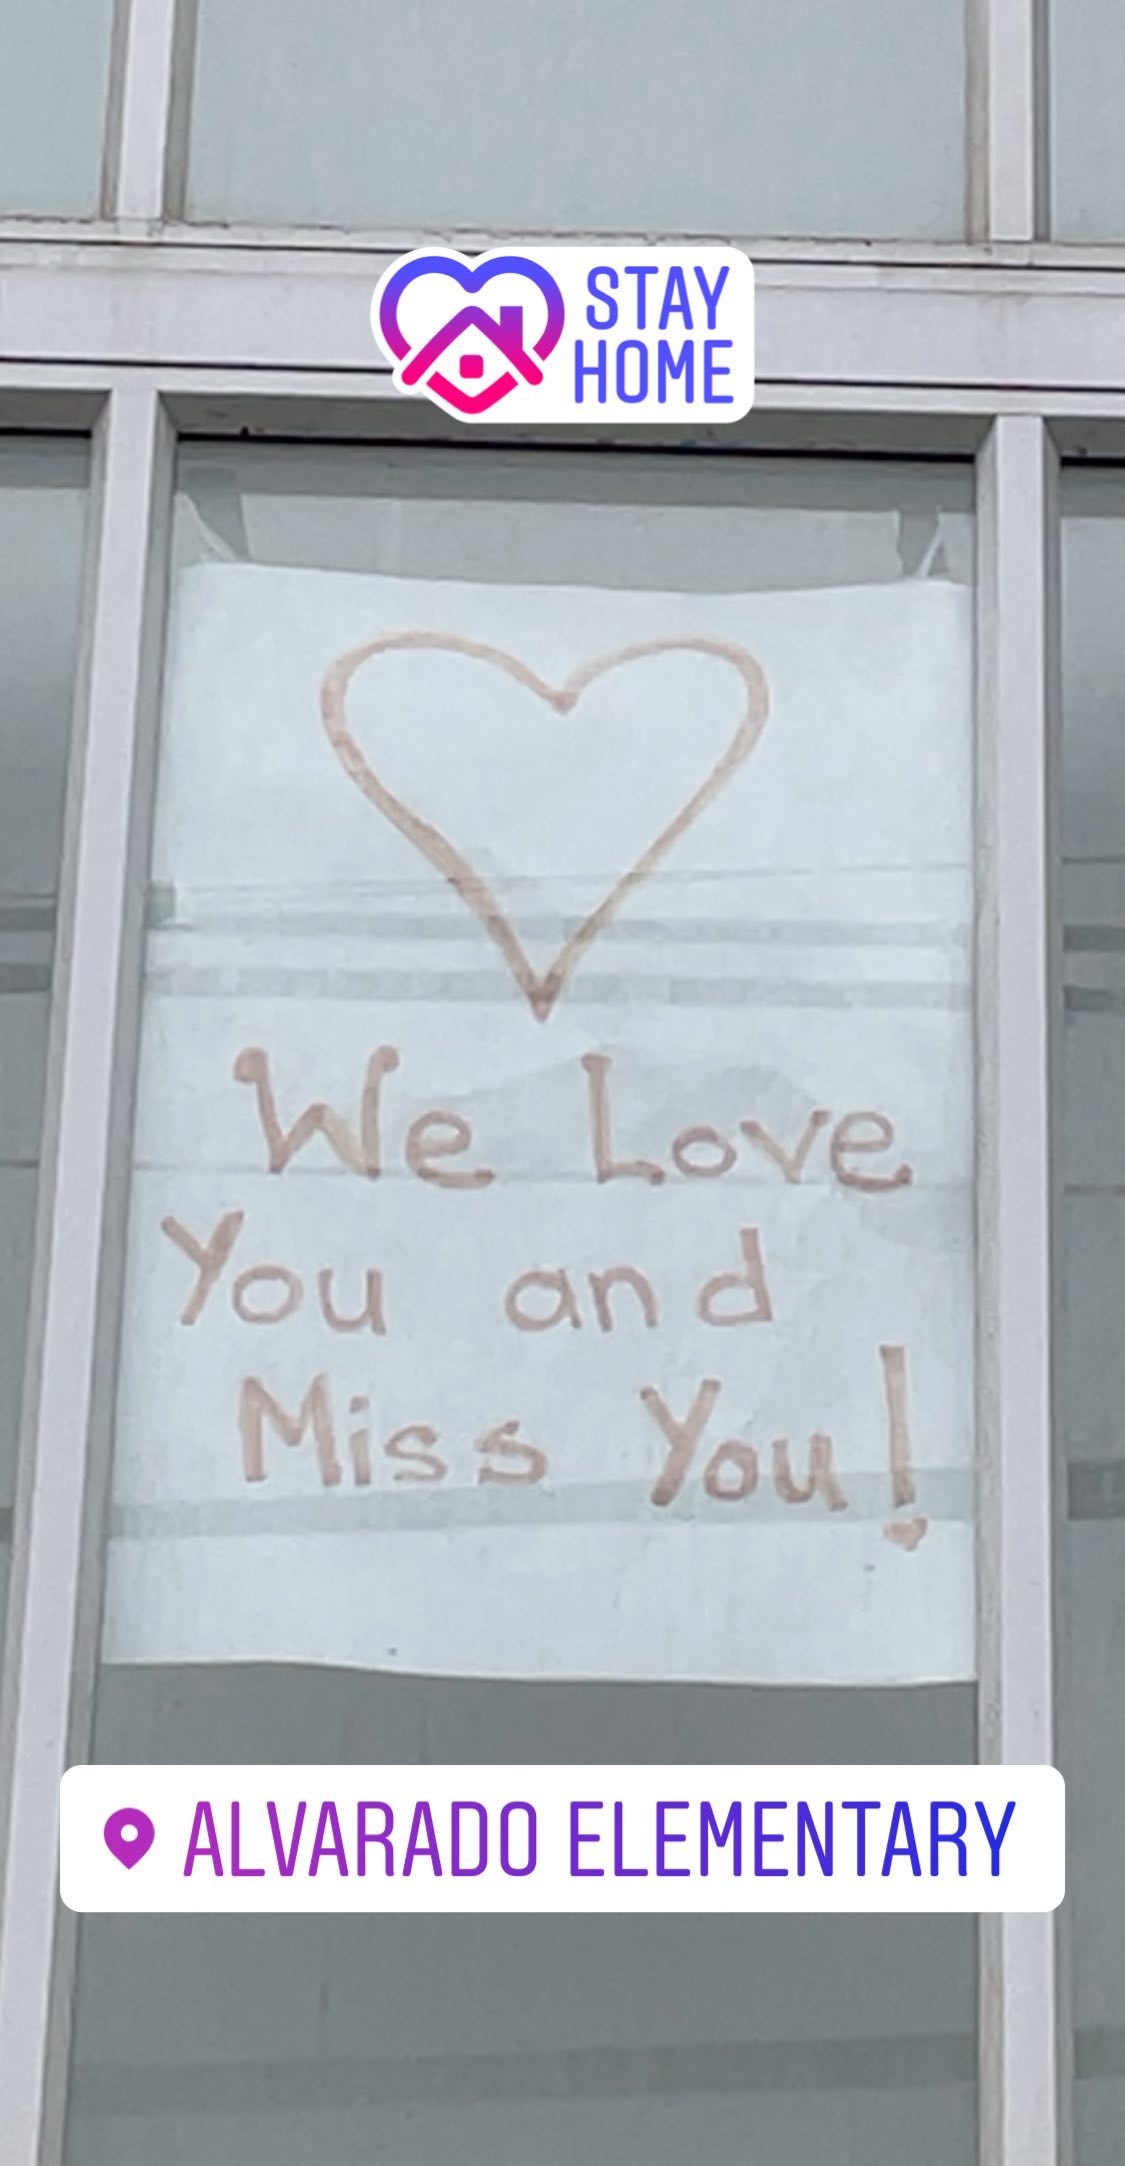 STAY
HOME
We Love
You and
Miss You!
ALVARADO ELEMENTARY